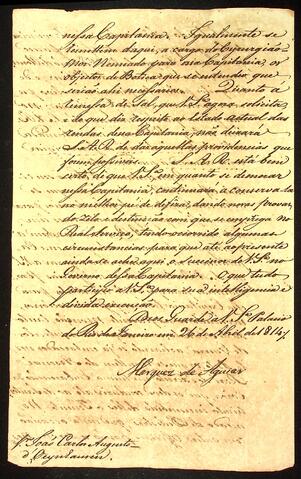 nessa Capitania. Igualmente se
remettem daqui, a cargo do Cyrurgião
Mór Nomeado para essa Capitania, os
objectos de Botica que se entendeo que
serião ahi necessarios. Quanto á
remessa de sal, que V. S.ª agora solicita,
e do que diz respeito ao estado actual das
rendas dessa Capitania, não deixará
S. A. R. de dar aquellas providencias que
forem possiveis. S. A. R. está bem
certo, de que V. S.ª em quanto se demorar
nessa Capitania, continuará a conserva-la
no milhor pé de defeza, dando novas provas
do zelo e destincção com que se emprega no
Real Serviço, tendo occorrido algumas
circunstancias para que até ao presente
ainda se ache aqui o Successor de V. S.ª no
Governo dessa Capitania. O que tudo
participo a V. S.ª para sua intelligencia e
devida execução.
Deos Guarde a V. S.ª Palacio
do Rio de Janeiro em 26 de Abril de 1817
Marquez de Aguiar
S.r João Carlos Augusto
d'Oeynhausen